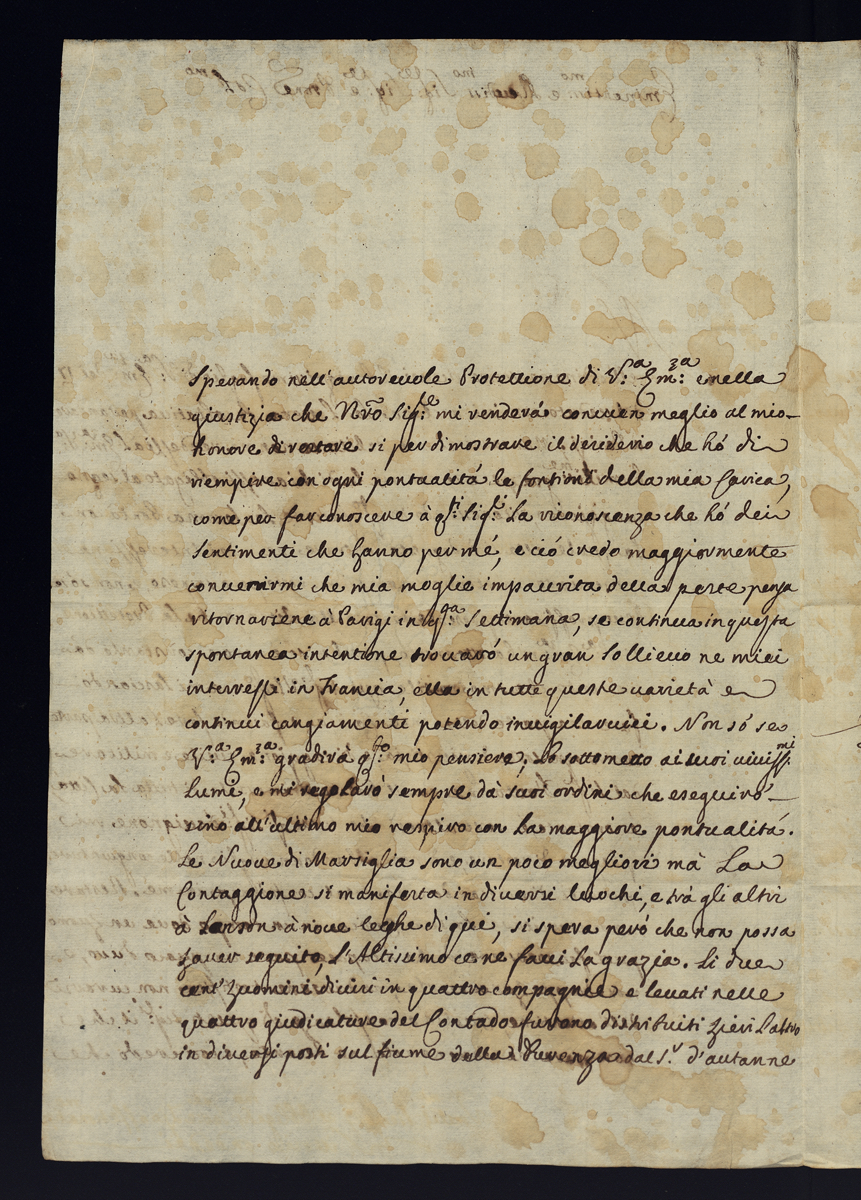 Sperando nell'autorevole Protettione di V.ª Em.zª e nella
giustizia che Nrõ Sig.re mi renderá convien meglio al mio
honore di restare si per dimostrare il desiderio che hó di
riempire con ogni pontualitá le fontioni della mia Carica,
come per far conoscere à q.sti Sig.ri La riconoscenza che hó dei
sentimenti che hanno per mé, e ció credo maggiormente
convenirmi che mia moglie impaurita della peste pensa
ritornarsene à Parigi in q.sta Settimana, se continua in questa
spontanea intentione trovaró un gran sollievo ne miei
interressi in Francia, ella in tutte queste varietà e
continui cangiamenti potendo invigilarvici. Non só se
V.ª Em.zª gradirà q.sto mio pensiero; Lo sottometto ai suoi viviss.mi
Lumi, e mi regolaró sempre dà suoi ordini che eseguiró
sino all'ultimo mio respiro con La maggiore pontualitá.
Le Nuove di Marsiglia sono un poco megliori mà La
Contaggione si manifesta in diversi luochi, e trà gli altri
à à nove leghe di qui, si spera peró che non possa
haver seguito, L'Altissimo ce ne facci La grazia. Li due
cent'huomini divisi in quattro compagnie e levati nelle
quattro giudicature del Contado furono distribuiti hieri L'altro
in diversi posti sul fiume della Durenza dal S.r d'autanne